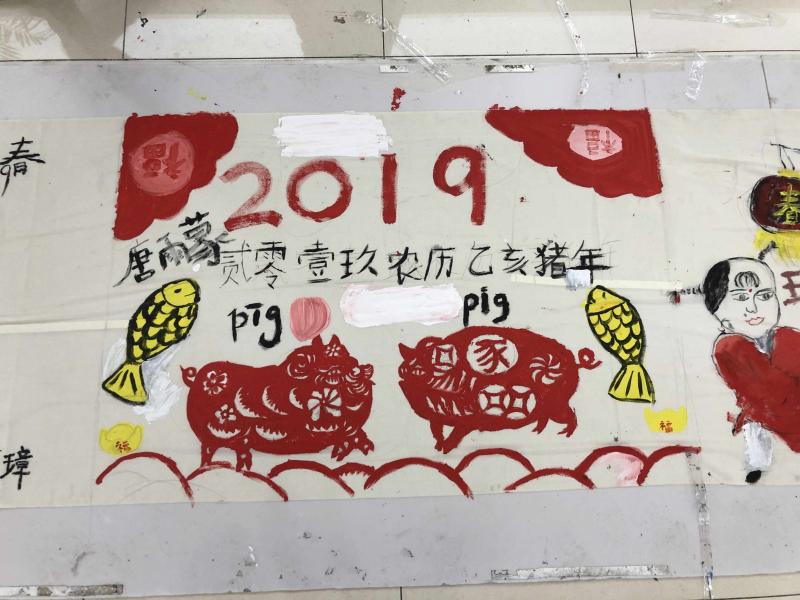 福
2019
春
唐雨蒙
贰零壹玖农历乙亥猪年
春
pīg
pig
家
福
福
璋